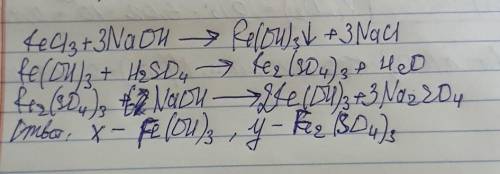 FeCl3 + 3NaOH → Fe(OH)3↓ + 3NaCl
Fe(OH)3 + H2SO4 → Fe2(SO4)3 + H2O
Fe2(SO4)3 + NaOH → 2Fe(OH)3 + 3Na2SO4
Ответ: x - Fe(OH)3, y - Fe2(SO4)3